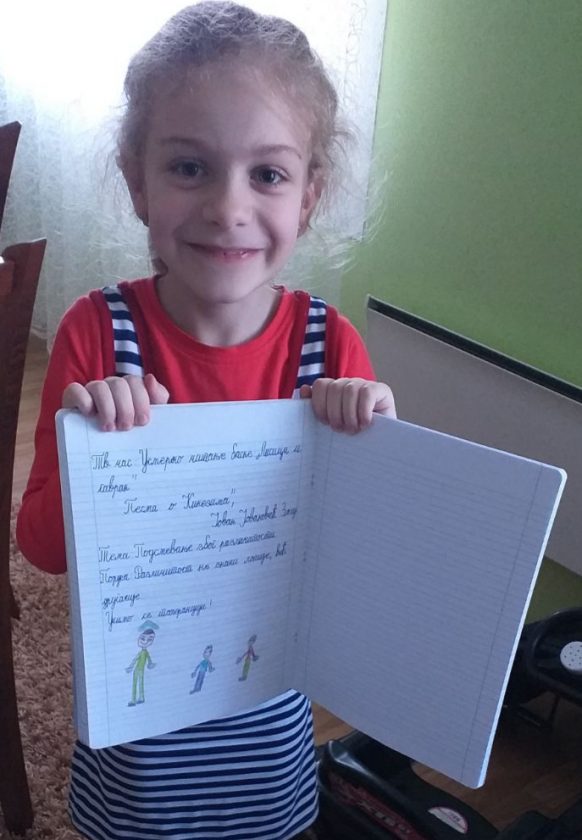 Тв. час Усмерено читање басне „Лисица и
гавран"
Песма о Кинезима",
Јован Јовановић Змај
Тема Подсмевање због различитости
Порука Различитост не значи лошије, већ
другачије
Учимо се толеранцији!